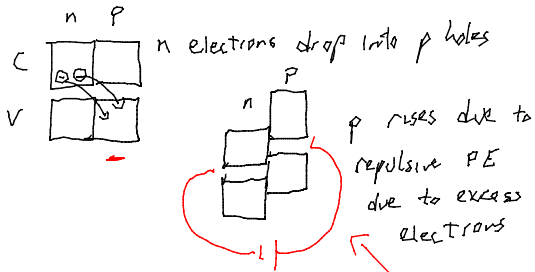 n P
C
n electrons drop into p holes
V
P
n
p rises due to
repulsive PE
due to excess
electrons